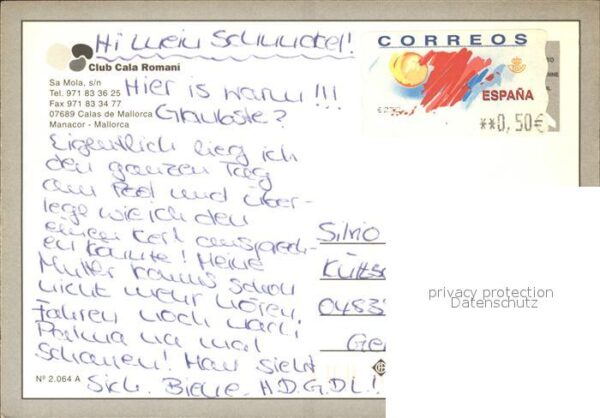 Hi mein Schnuckel!
CORREOS
ESPAÑA
**0,50€
Club Cala Romani
Sa Mola, s/n
Tel. 971 83 36 25
Fax 971 83 34 77
07689 Calas de Mallorca
Manacor - Mallorca
Hier is warm!!!
Glaubste?
Eigentlich lieg ich
den ganzen Tag
am Pool und über-
lege wie ich den
einen Kerl ansprech-
en könnte! Meine
Mutter kanns schon
nicht mehr hören.
Fahren noch nach
Palma na mal
schauen! Man sieht
sich. Biene. H.D.G.D.L.!
Silvio
0483
Ge
privacy protection
Datenschutz
Nº 2.064 A